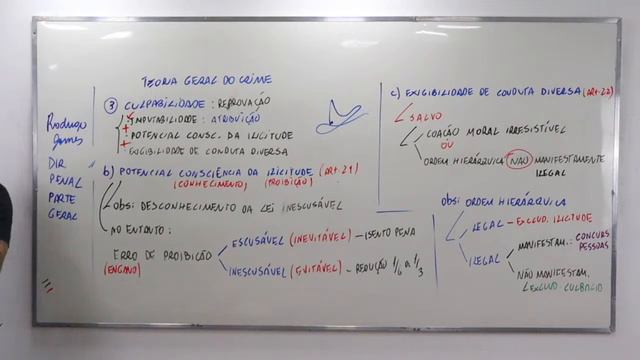 Rodrigo
Gomes
DIR
PENAL
PARTE
GERAL
TEORIA GERAL DO CRIME
3 CULPABILIDADE: REPROVAÇÃO
IMPUTABILIDADE: ATRIBUIÇÃO
+ POTENCIAL CONSC. DA ILICITUDE
+ EXIGIBILIDADE DE CONDUTA DIVERSA
b) POTENCIAL CONSCIÊNCIA DA ILICITUDE (ART. 21)
(CONHECIMENTO) (PROIBIÇÃO)
OBS: DESCONHECIMENTO DA LEI INESCUSÁVEL
NO ENTANTO:
ERRO DE PROIBIÇÃO
(ENGANO)
ESCUSÁVEL (INEVITÁVEL) – ISENTO PENA
INESCUSÁVEL (EVITÁVEL) – REDUÇÃO 1/6 a 1/3
c) EXIGIBILIDADE DE CONDUTA DIVERSA (ART. 22)
SALVO
COAÇÃO MORAL IRRESISTÍVEL
OU
ORDEM HIERÁRQUICA NÃO MANIFESTAMENTE
ILEGAL
OBS: ORDEM HIERÁRQUICA
LEGAL – EXCLUD. ILICITUDE
ILEGAL
MANIFESTAM.: CONCURS
PESSOAS
NÃO MANIFESTAM.